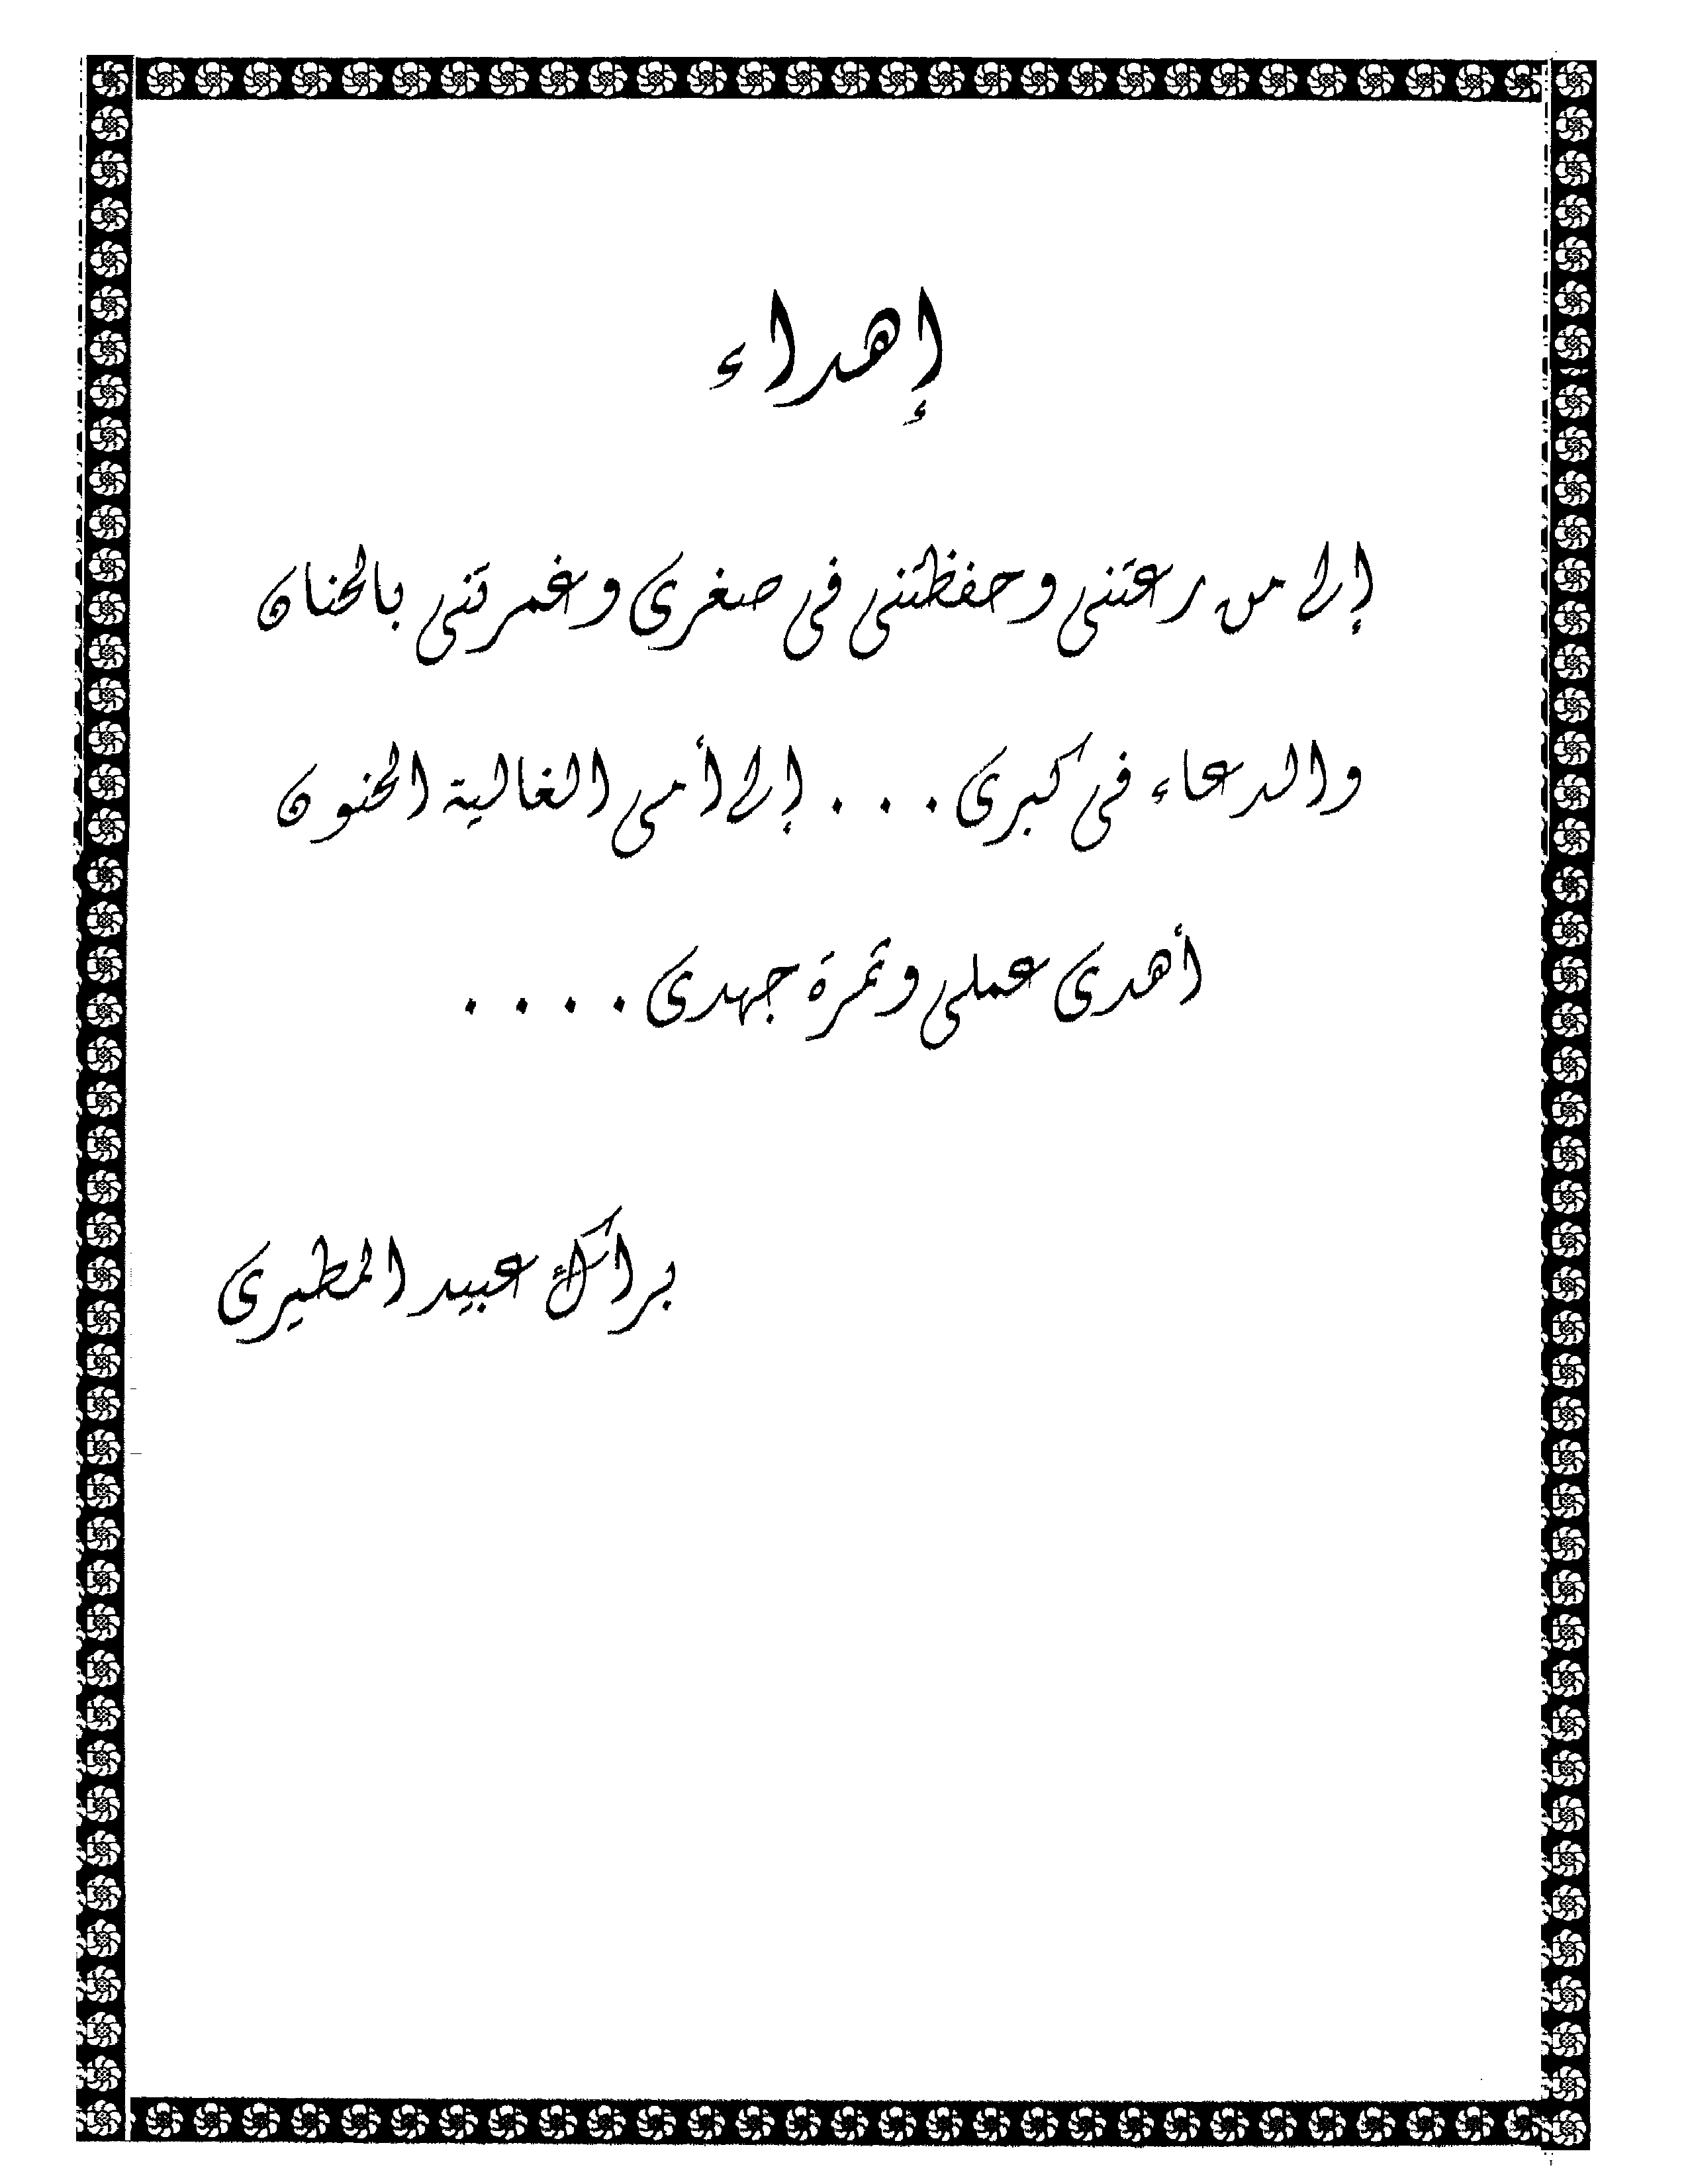 إهداء
إلى من رعتنى وحفظتنى فى صغرى وغمرتنى بالحنان
والدعاء فى كبرى . . . إلى أمى الغالية الحنون
أهدى عملى وثمرة جهدى . . . .
براك عبيد المطيرى